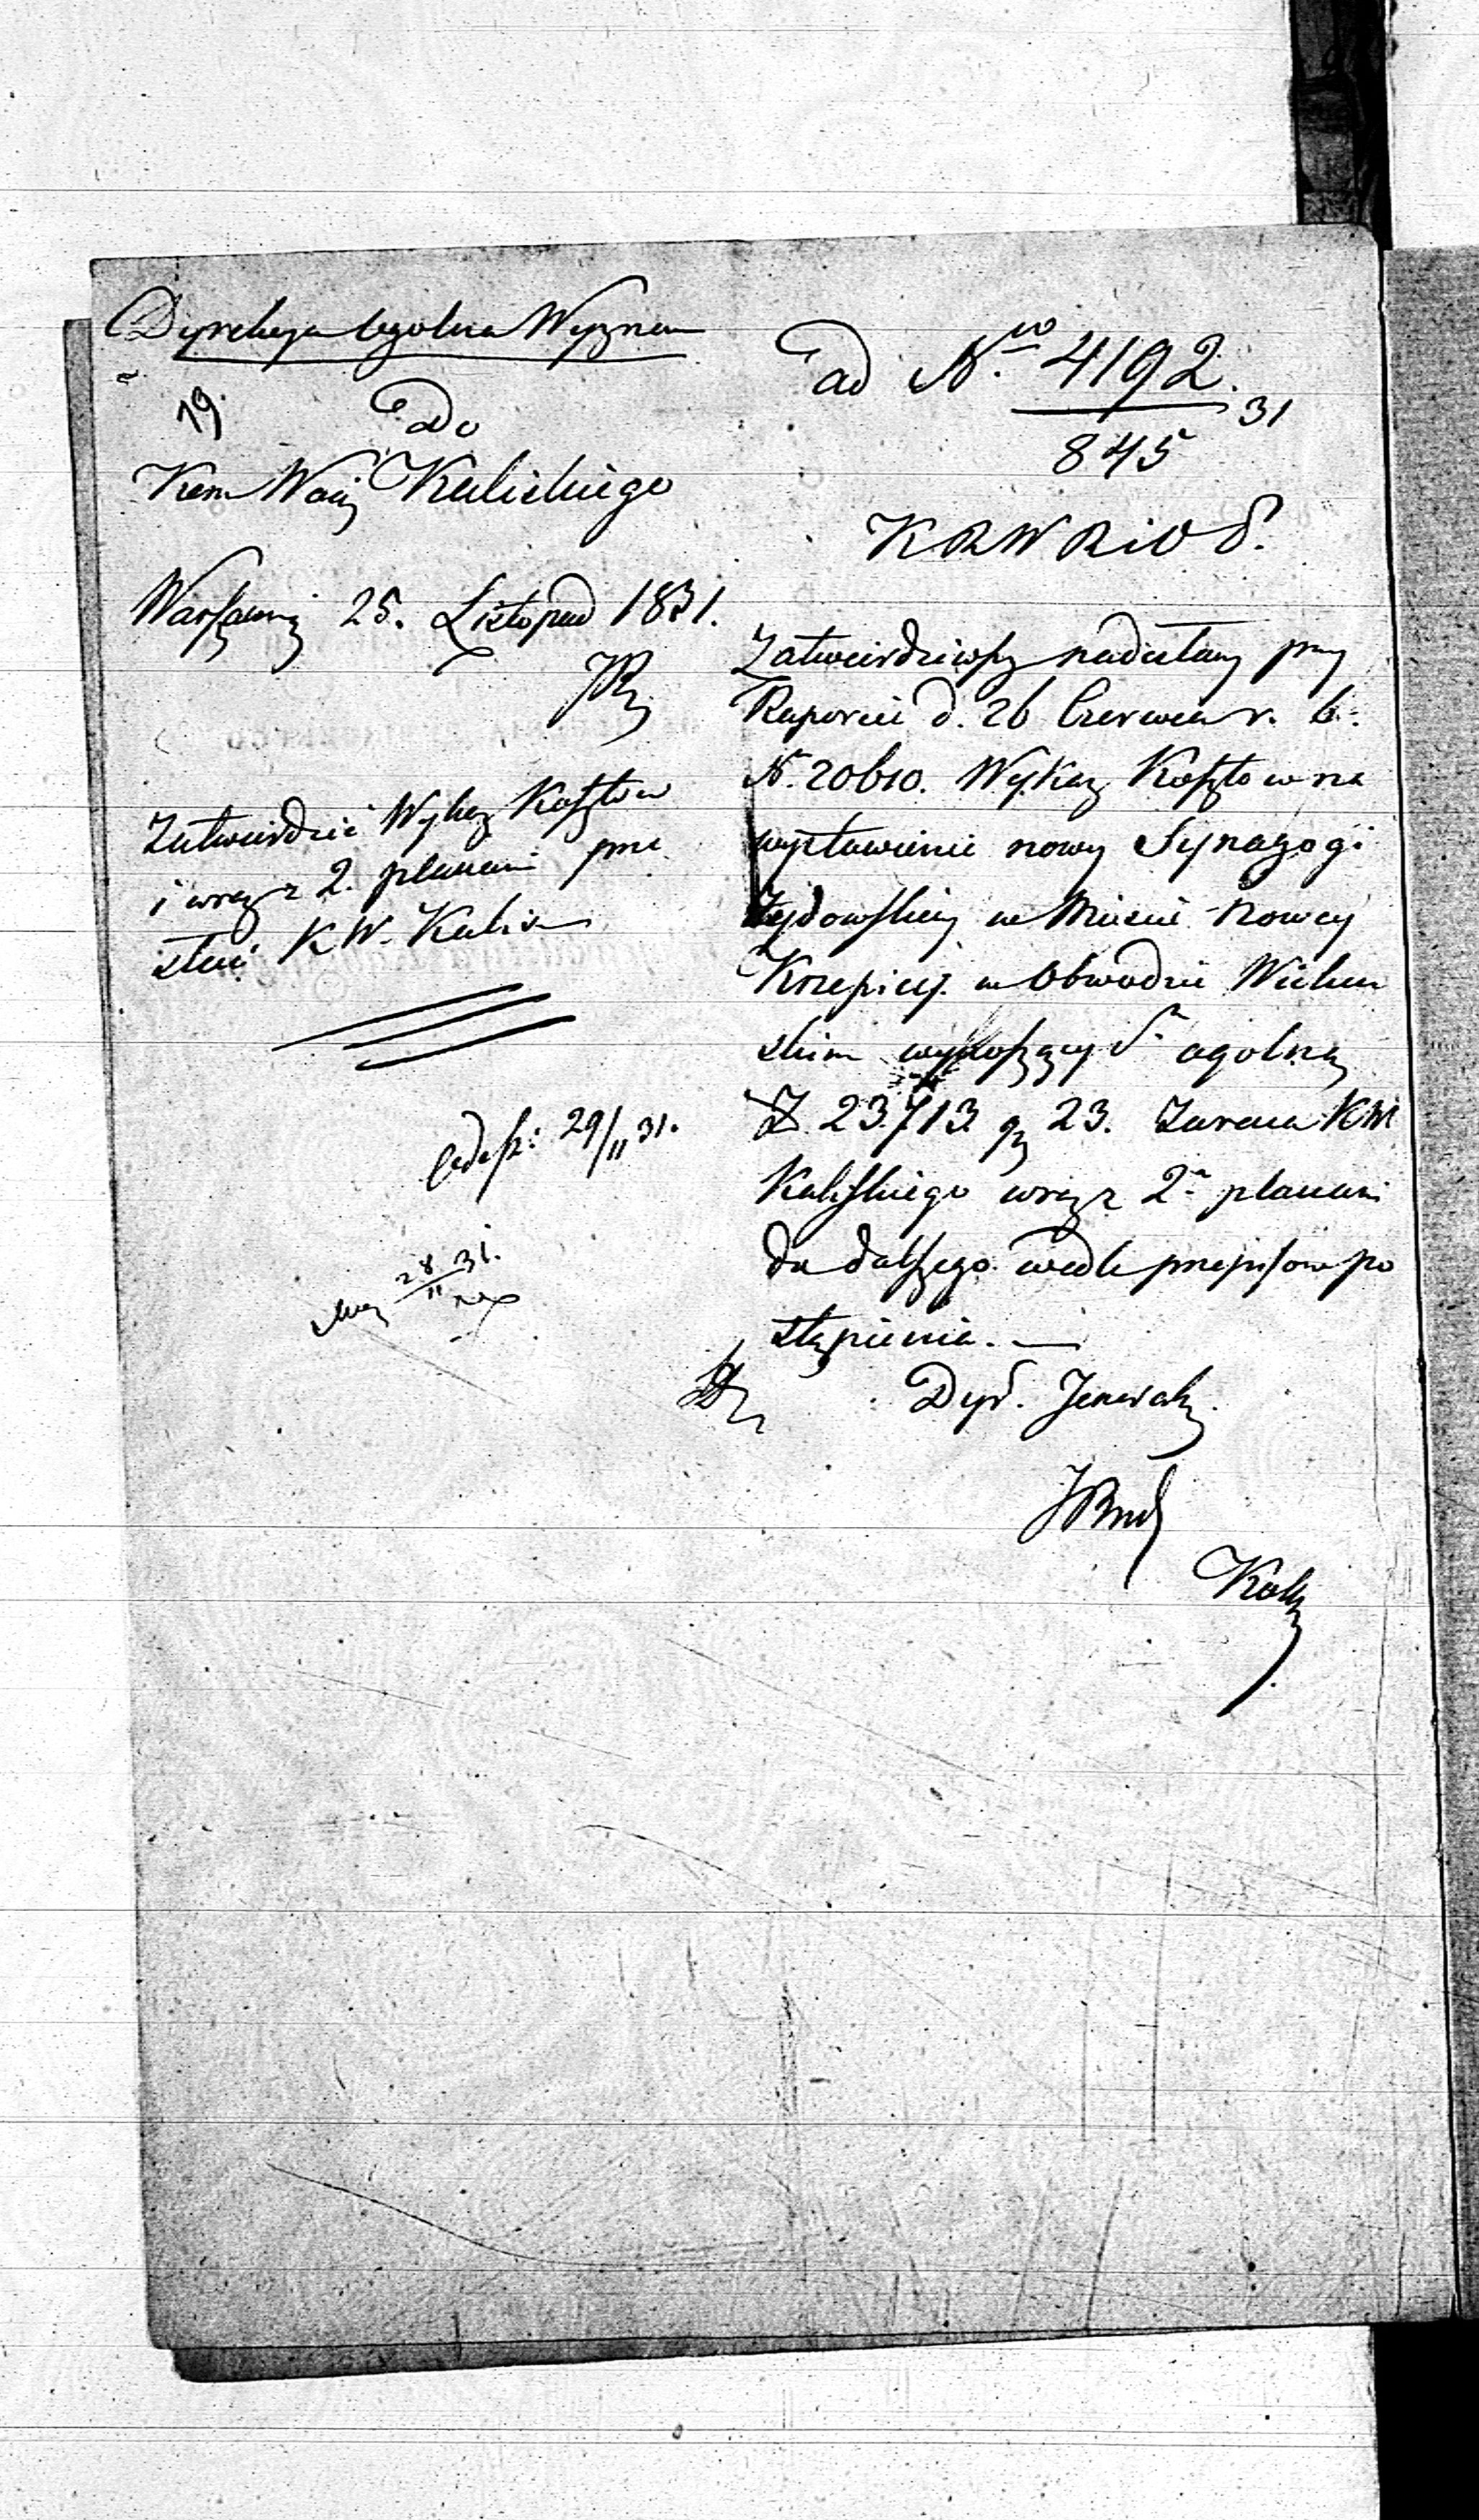 Dyrekcya Ogolna Wyznan
19.
Do
Kom Wojj Kaliskiego
Warszawa 25. Listopad 1831.
Zatwierdzić Wykaz Kosztow
i wraz z 2. planami prze
słać K W. Kalis
29/11 31.
28/11 31.
ad Nro 4192.
845
31
K R W R i O P.
Zatwierdziwszy nadesłany przy
Raporcie d. 26 Czerwca r. b.
N. 20610. Wykaz Kosztow na
wystawienie nowy Synagogi
Żydowskiey w Miescie Nowey
Krzepicy. w Obwodzie Wieluń
skim wynoszący S. ogolną
Zł. 23713 gr 23. Zwraca KW
Kaliskiego wraz z 2a planami
do dalszego wedle przepisow po
stąpienia.
Dyr. Jeneralny